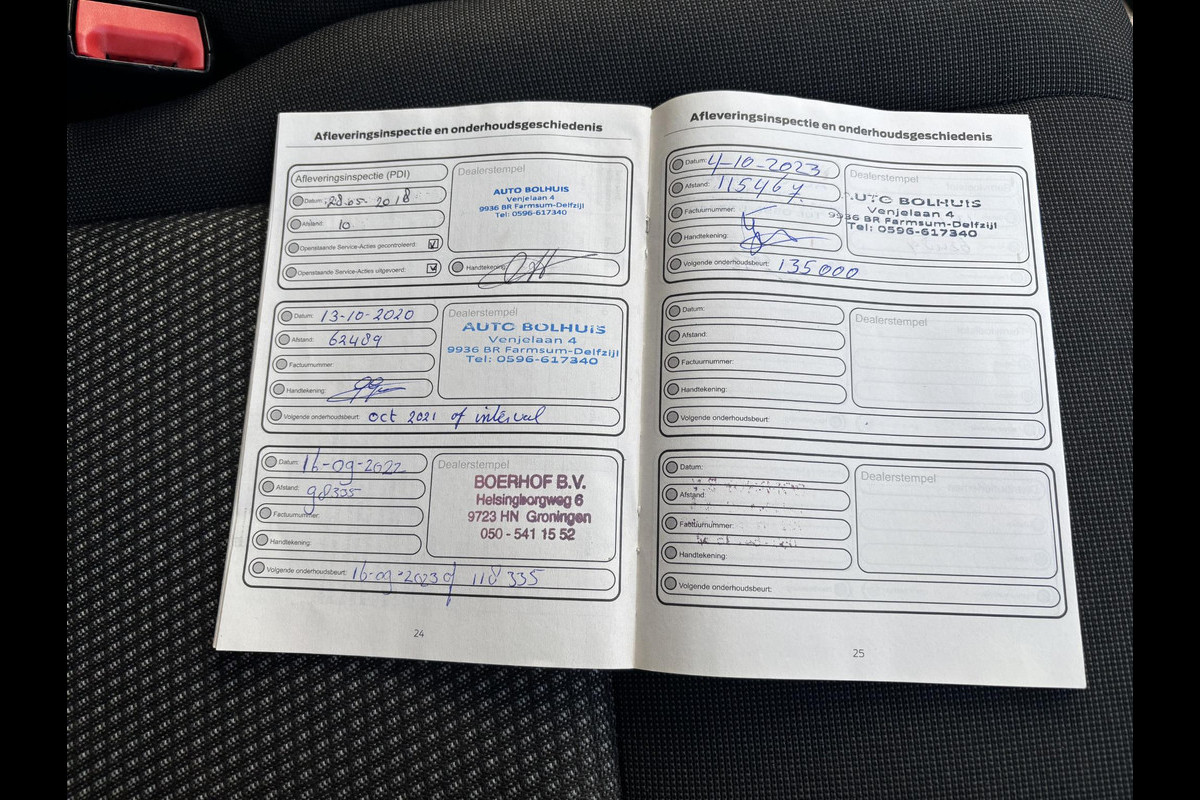 Afleveringsinspectie en onderhoudsgeschiedenis
Afleveringsinspectie (PDI)
Datum: 28-05-2018
Afstand: 10
Openstaande Service-Acties gecontroleerd:
Openstaande Service-Acties uitgevoerd:
Dealerstempel
AUTO BOLHUIS
Venjelaan 4
9936 BR Farmsum-Delfzijl
Tel: 0596-617340
Handtekening:
Datum: 13-10-2020
Afstand: 62489
Factuurnummer:
Handtekening:
Dealerstempel
AUTO BOLHUIS
Venjelaan 4
9936 BR Farmsum-Delfzijl
Tel: 0596-617340
Volgende onderhoudsbeurt: oct 2021 of interval
Datum: 16-09-2022
Afstand: 98335
Factuurnummer:
Handtekening:
Dealerstempel
BOERHOF B.V.
Helsingborgweg 6
9723 HN Groningen
050 - 541 15 52
Volgende onderhoudsbeurt: 16-09-2023 of 118335
24
Afleveringsinspectie en onderhoudsgeschiedenis
Datum: 4-10-2023
Afstand: 115467
Factuurnummer:
Handtekening:
Dealerstempel
AUTO BOLHUIS
Venjelaan 4
9936 BR Farmsum-Delfzijl
Tel: 0596-617340
Volgende onderhoudsbeurt: 135000
Datum:
Afstand:
Factuurnummer:
Handtekening:
Dealerstempel
Volgende onderhoudsbeurt:
Datum:
Afstand
Factuurnummer:
Handtekening:
Dealerstempel
Volgende onderhoudsbeurt:
25